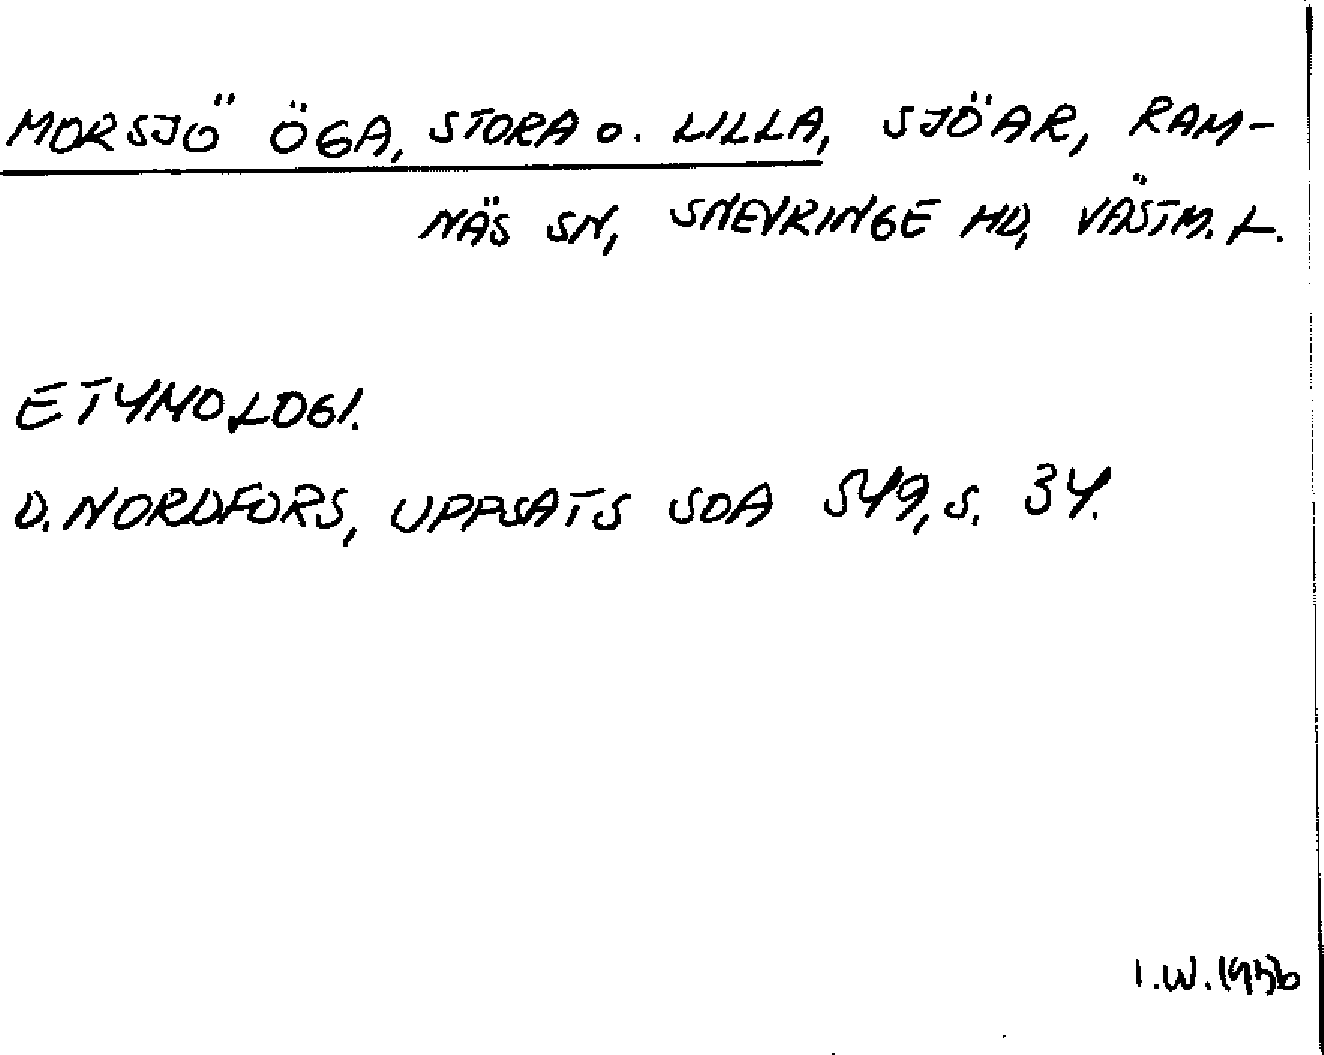 MORSJÖ ÖGA, STORA o. LILLA, SJÖAR, RAM-
NÄS SN, SNEVRINGE HD, VÄSTM. L.
ETYMOLOGI.
D. NORDFORS, UPPSATS SOA 549, S. 34.
I.W.